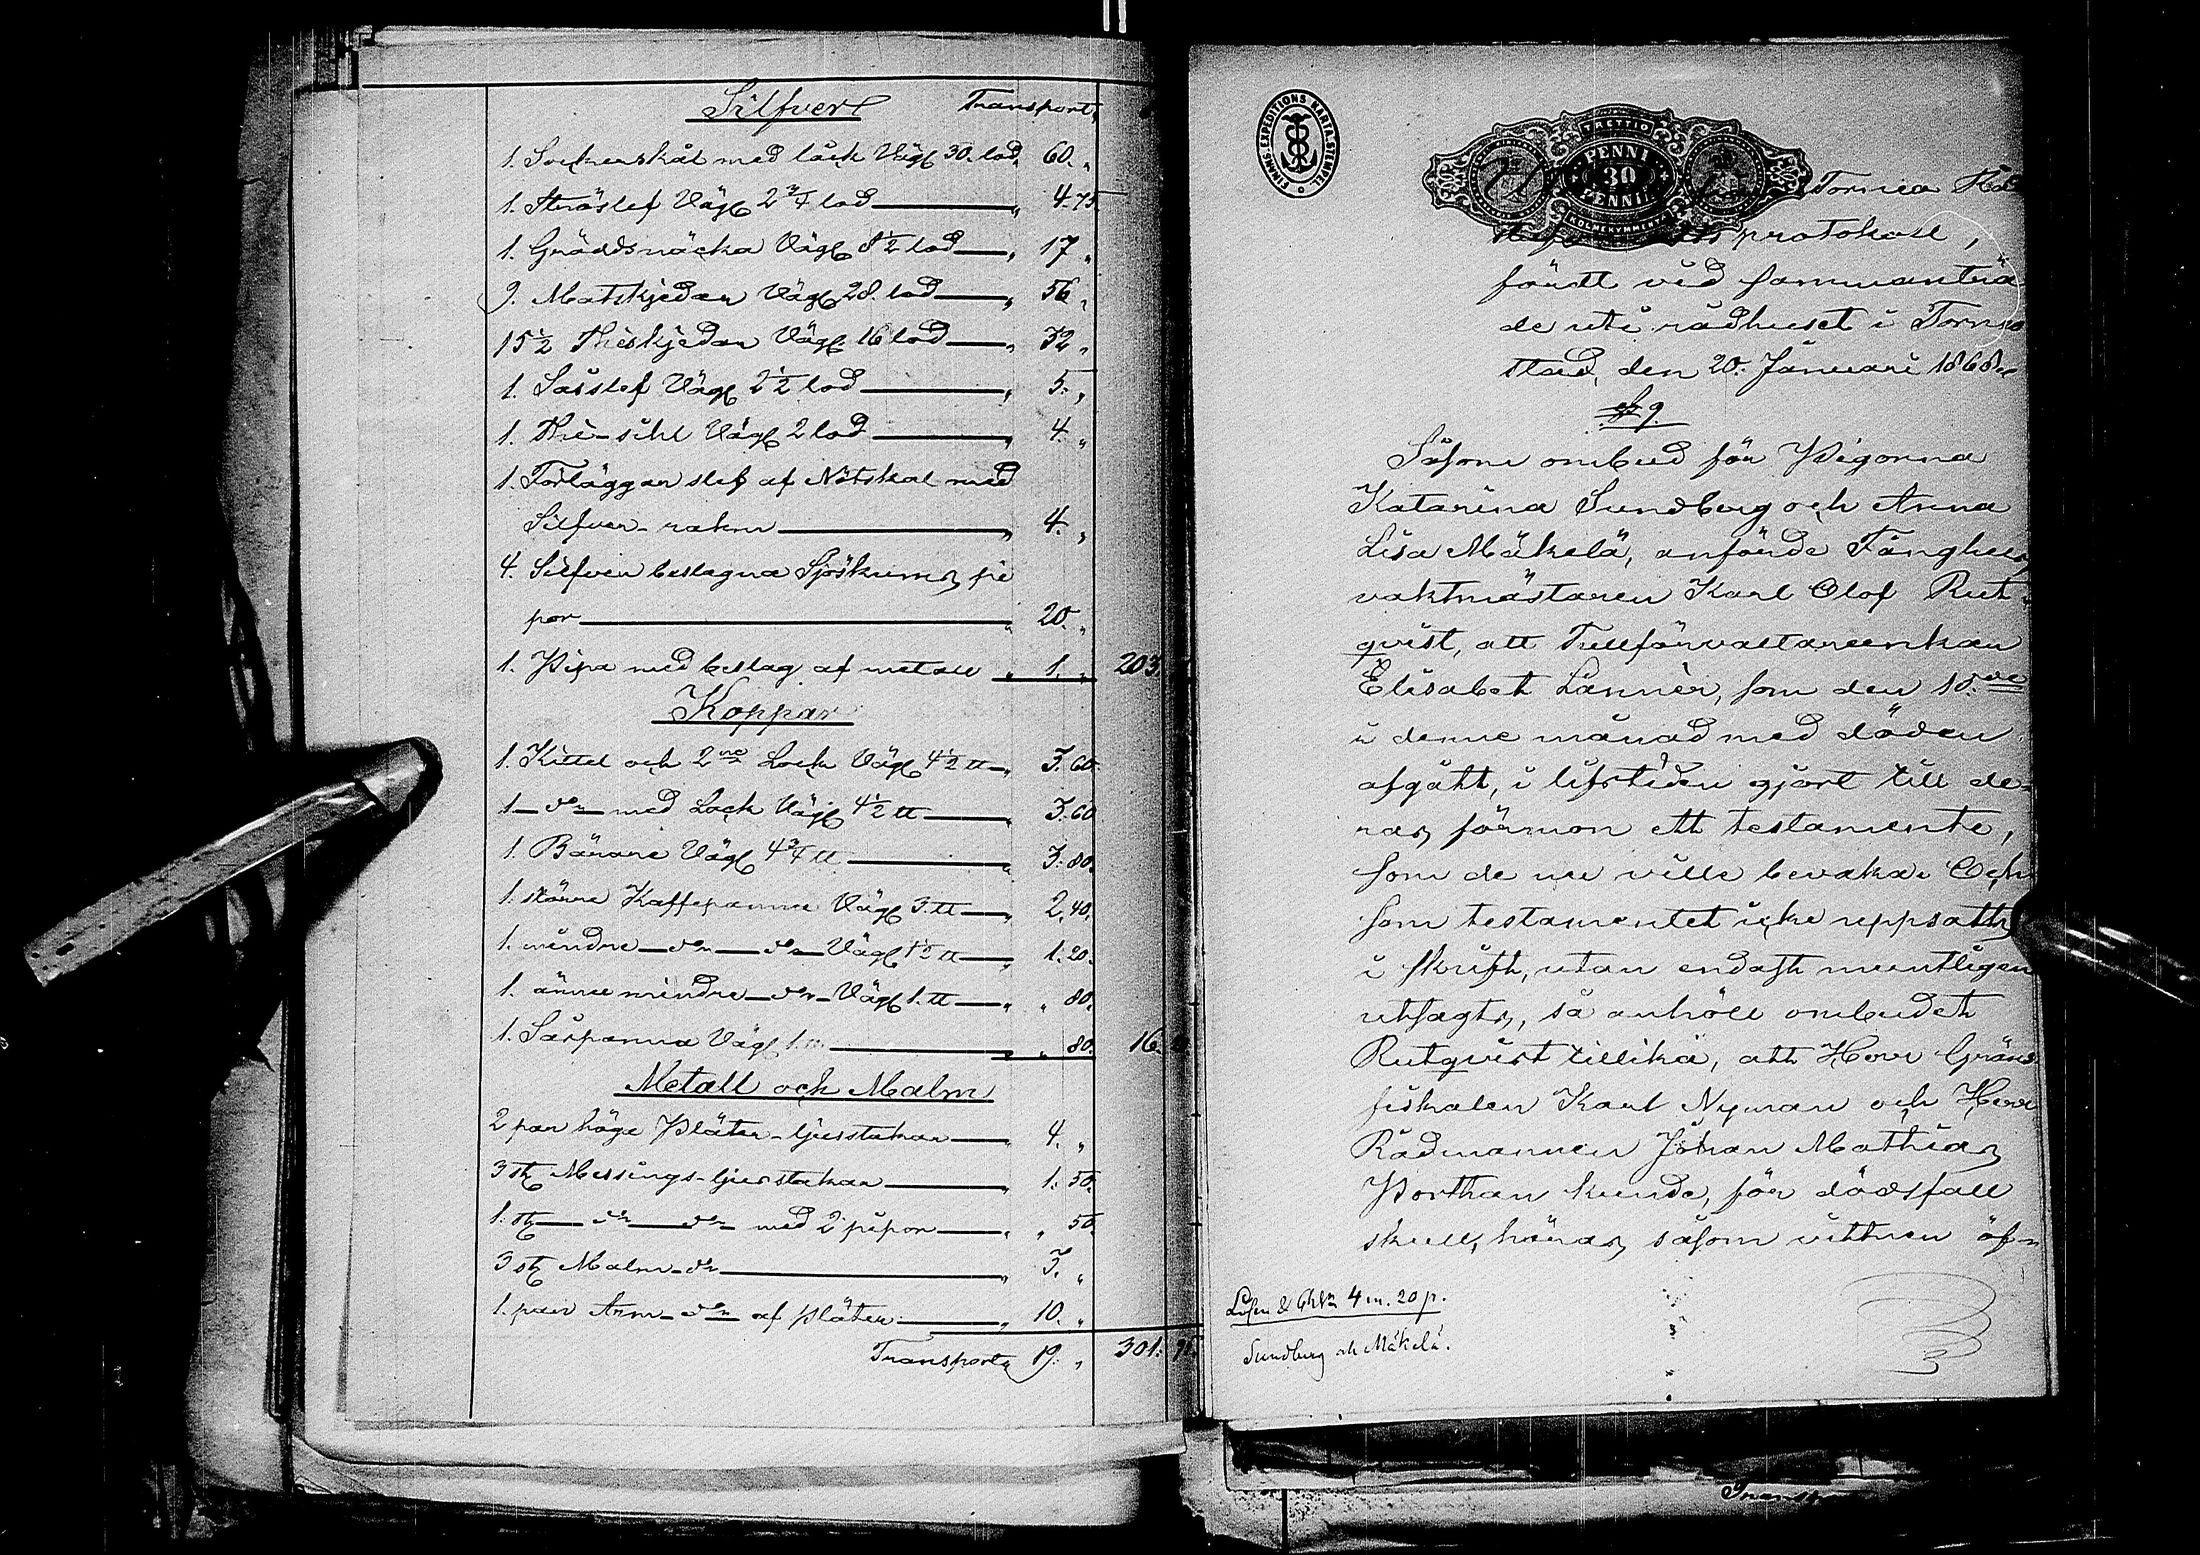 Silfver Transport,
1. Sockerskål med låck Väg 30. lod, 60. "
1. Ströslef Väg 2 3/4 lod " 4.75.
1. Gräddsnäcka Väg 8 1/2 lod " 17 "
9. Matskjedar Väg 28. lod " 56 "
15 1/2 Theskjedar Väg 16 lod " 32 "
1. Såsslef Väg 2 1/2 lod " 5. "
1. The-sihl Väg 2 lod " 4. "
1. Förläggar slef af Nötskal med
Silfver-rakm " 4. "
4. Silfver beslagna Sjöskums pi
por " 20. "
1. Pipa med beslag af metall " 1. " 203
Koppar
1. Kittel och 2ne Lock Väg 4 1/2 tt " 3.60.
1 — do — med Lock Väg 4 1/2 tt " 3.60
1. Bärare Väg 4 3/4 tt " 3:80.
1. större Kaffepanna Väg 3. tt " 2,40.
1. mindre — do — do — Väg 1 1/2 tt " 1:20.
1. ännu mindre — do — Väg 1. tt " " 80.
1. Såspanna Väg 1. tt " " 80. 16.
Metall och Malm
2 par höga Pläter-ljusstakar " 4. "
3 st Messings-ljusstakar " 1.50.
1. st — do — do — med 2 pipor " " 50.
3 st Malm-do " 3. "
1. par Arm-do af pläter " 10. "
Transport " 19. " 301.
FINANS-EXPEDITIONS KARTA STEMPEL
TRETTIO
PENNI
30
PENNIÄ
KOLMEKYMMENTÄ
Tornea Råd
protokoll,
fördt vid sammanträ
de uti rådhuset i Tornea
stad, den 20. Januari 1868.
§ 9.
Såsom ombud för Pigorna
Katarina Sundberg och Anna
Lisa Mäkelä, anförde Fånghus
vaktmästaren Karl Olof Rut-
qvist, att Tullförvaltareenkan
Elisabet Lannér, som den 10.de
i denne månad med döden
afgått, i lifstiden gjort till de-
ras förmon ett testamente,
som de nu ville bevaka. Och
som testamentet icke uppsatts
i skrift, utan endast muntligen
utsagts, så anhöll ombudet
Rutqvist tillika, att Herr Gräns
fiskalen Karl Nyman och Herr
Rådmannen Johan Mathias
Porthan kunde, för dödsfall
skull, höras såsom vittnen öf-
Lösen & 4 m. 20 p.
Sundberg och Mäkelä.